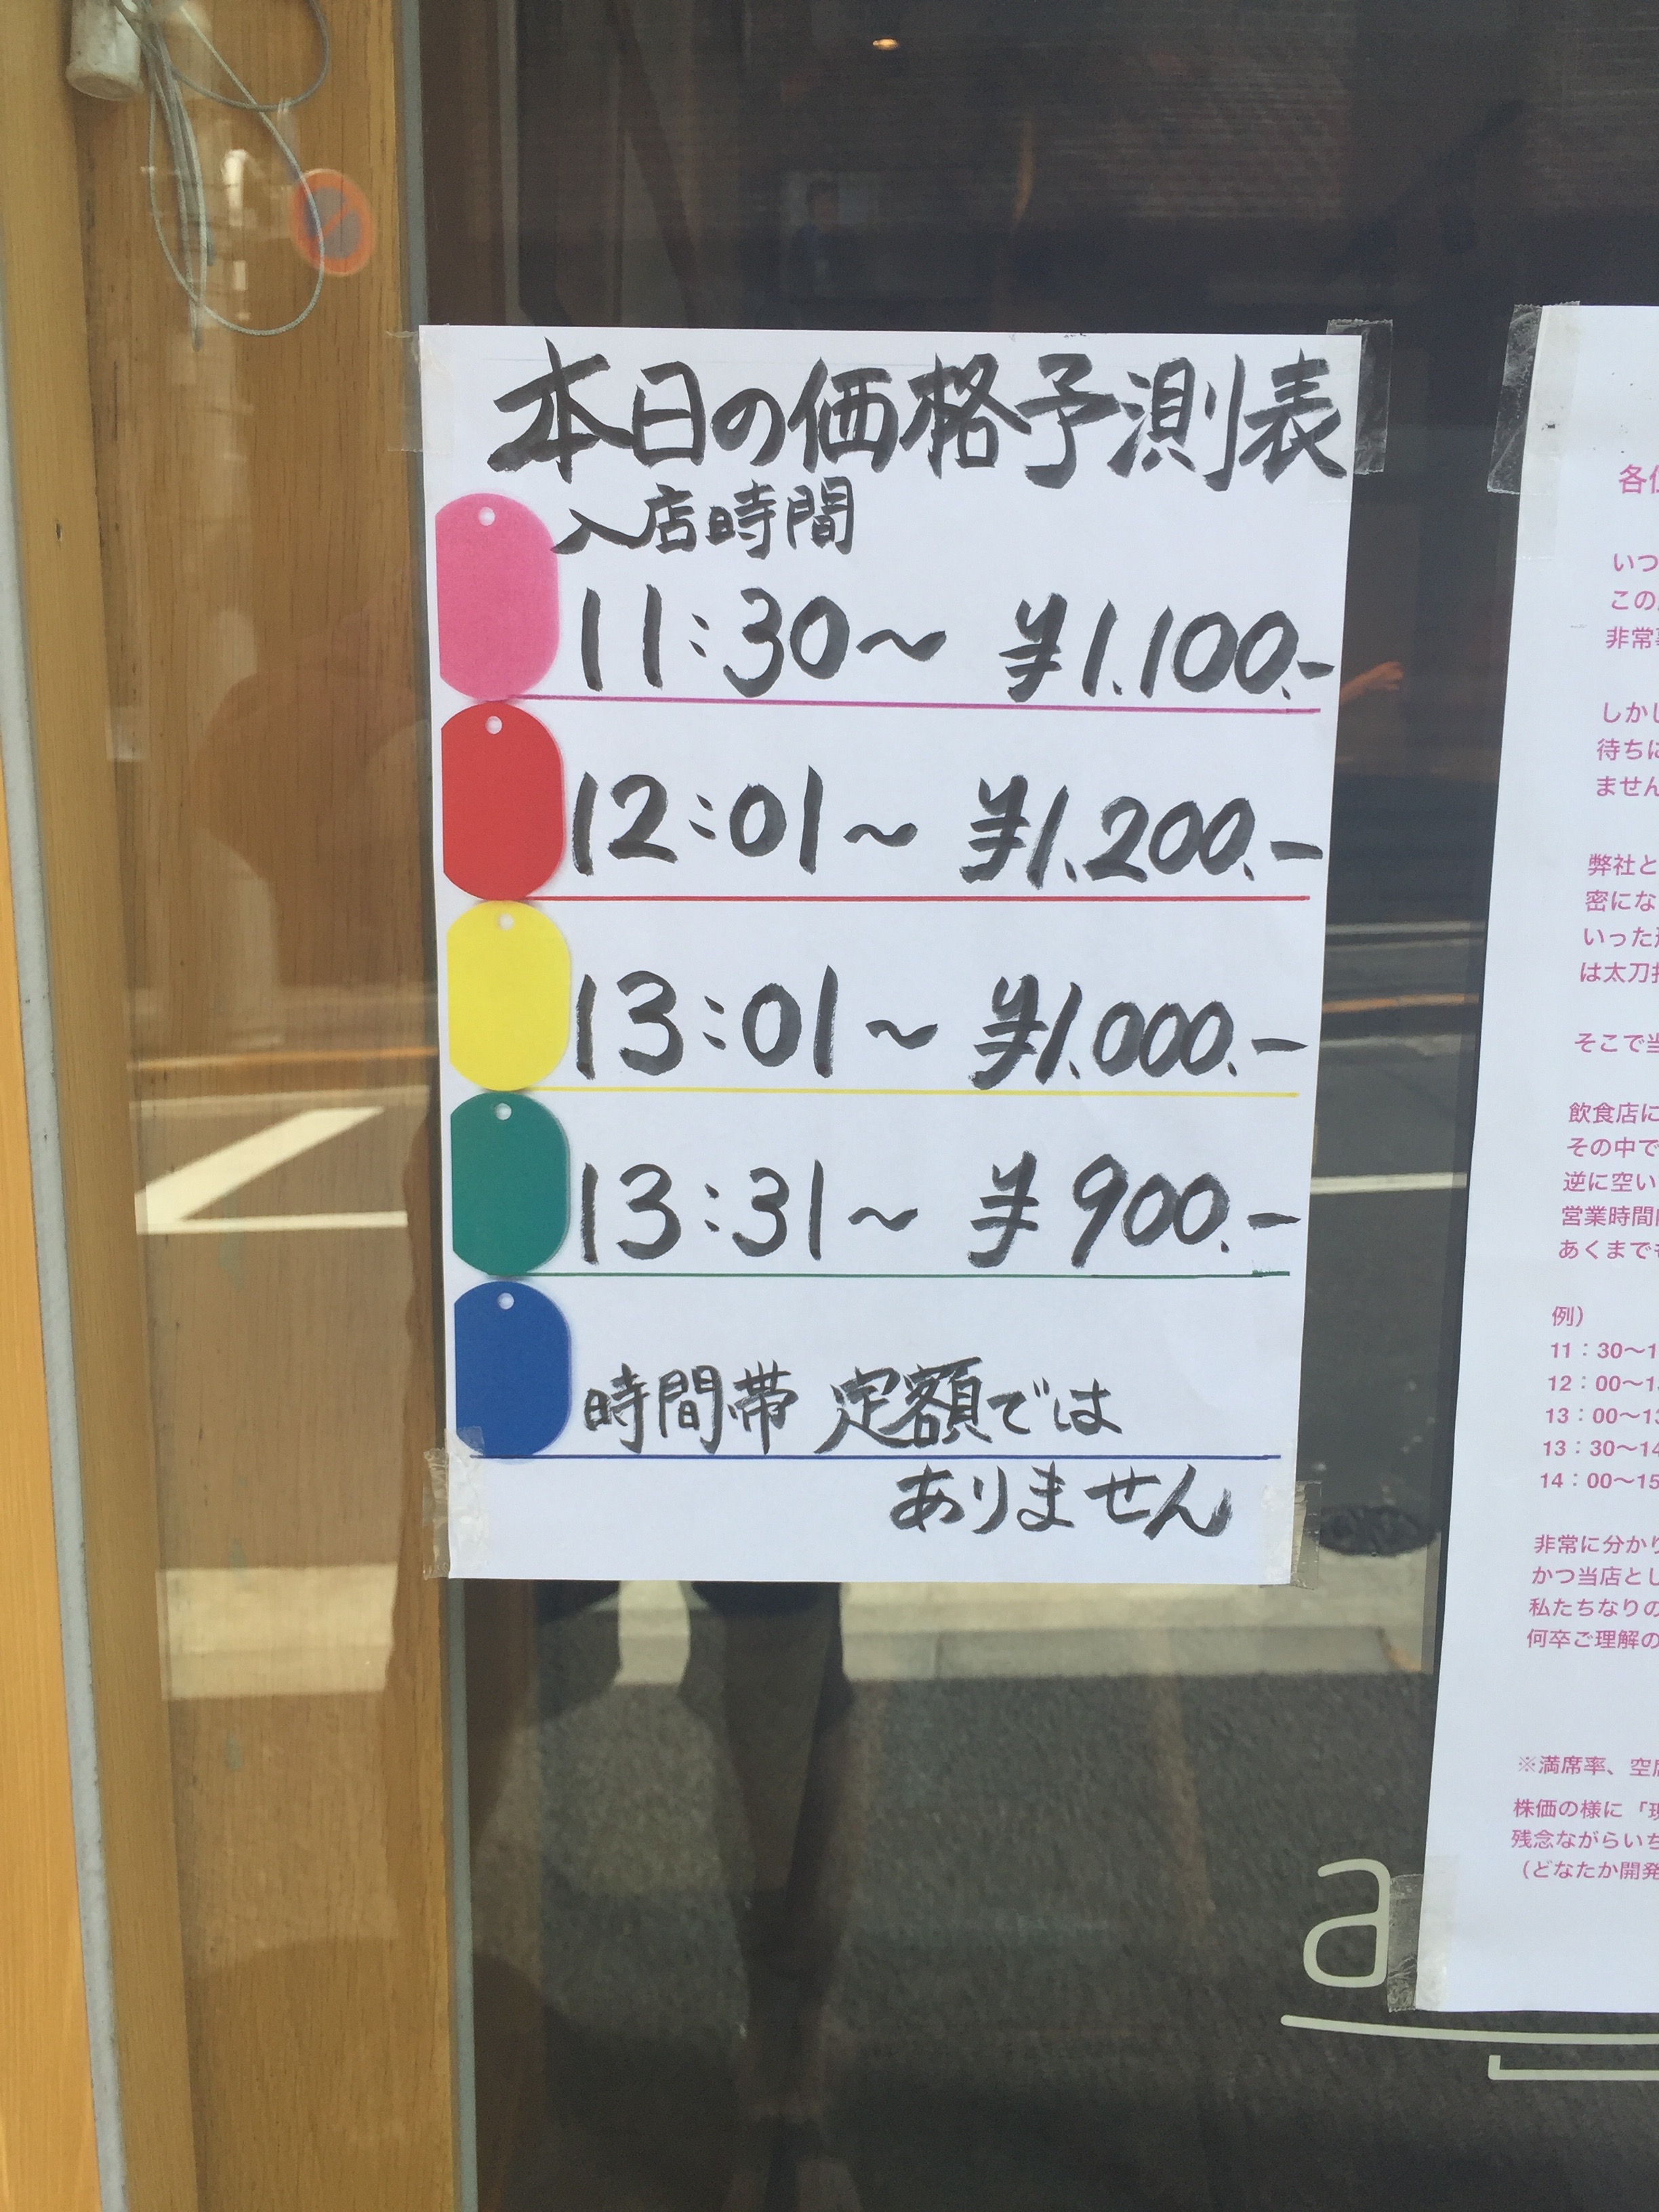 本日の価格予測表
入店時間
11:30～ ¥1.100.-
12:01～ ¥1.200.-
13:01～ ¥1.000.-
13:31～ ¥900.-
時間帯 定額では
ありません
いつ
この
非常
しかし
待ちに
ません
弊社と
密にな
いった
は太刀
そこで当
飲食店に
その中で
逆に空い
営業時間
あくまで
例）
11：30～1
12：00～1
13：00～13
13：30～14
14：00～15
非常に分かり
かつ当店とし
私たちなりの
何卒ご理解の
※満席率、空席
株価の様に「現
残念ながらいち
（どなたか開発
a